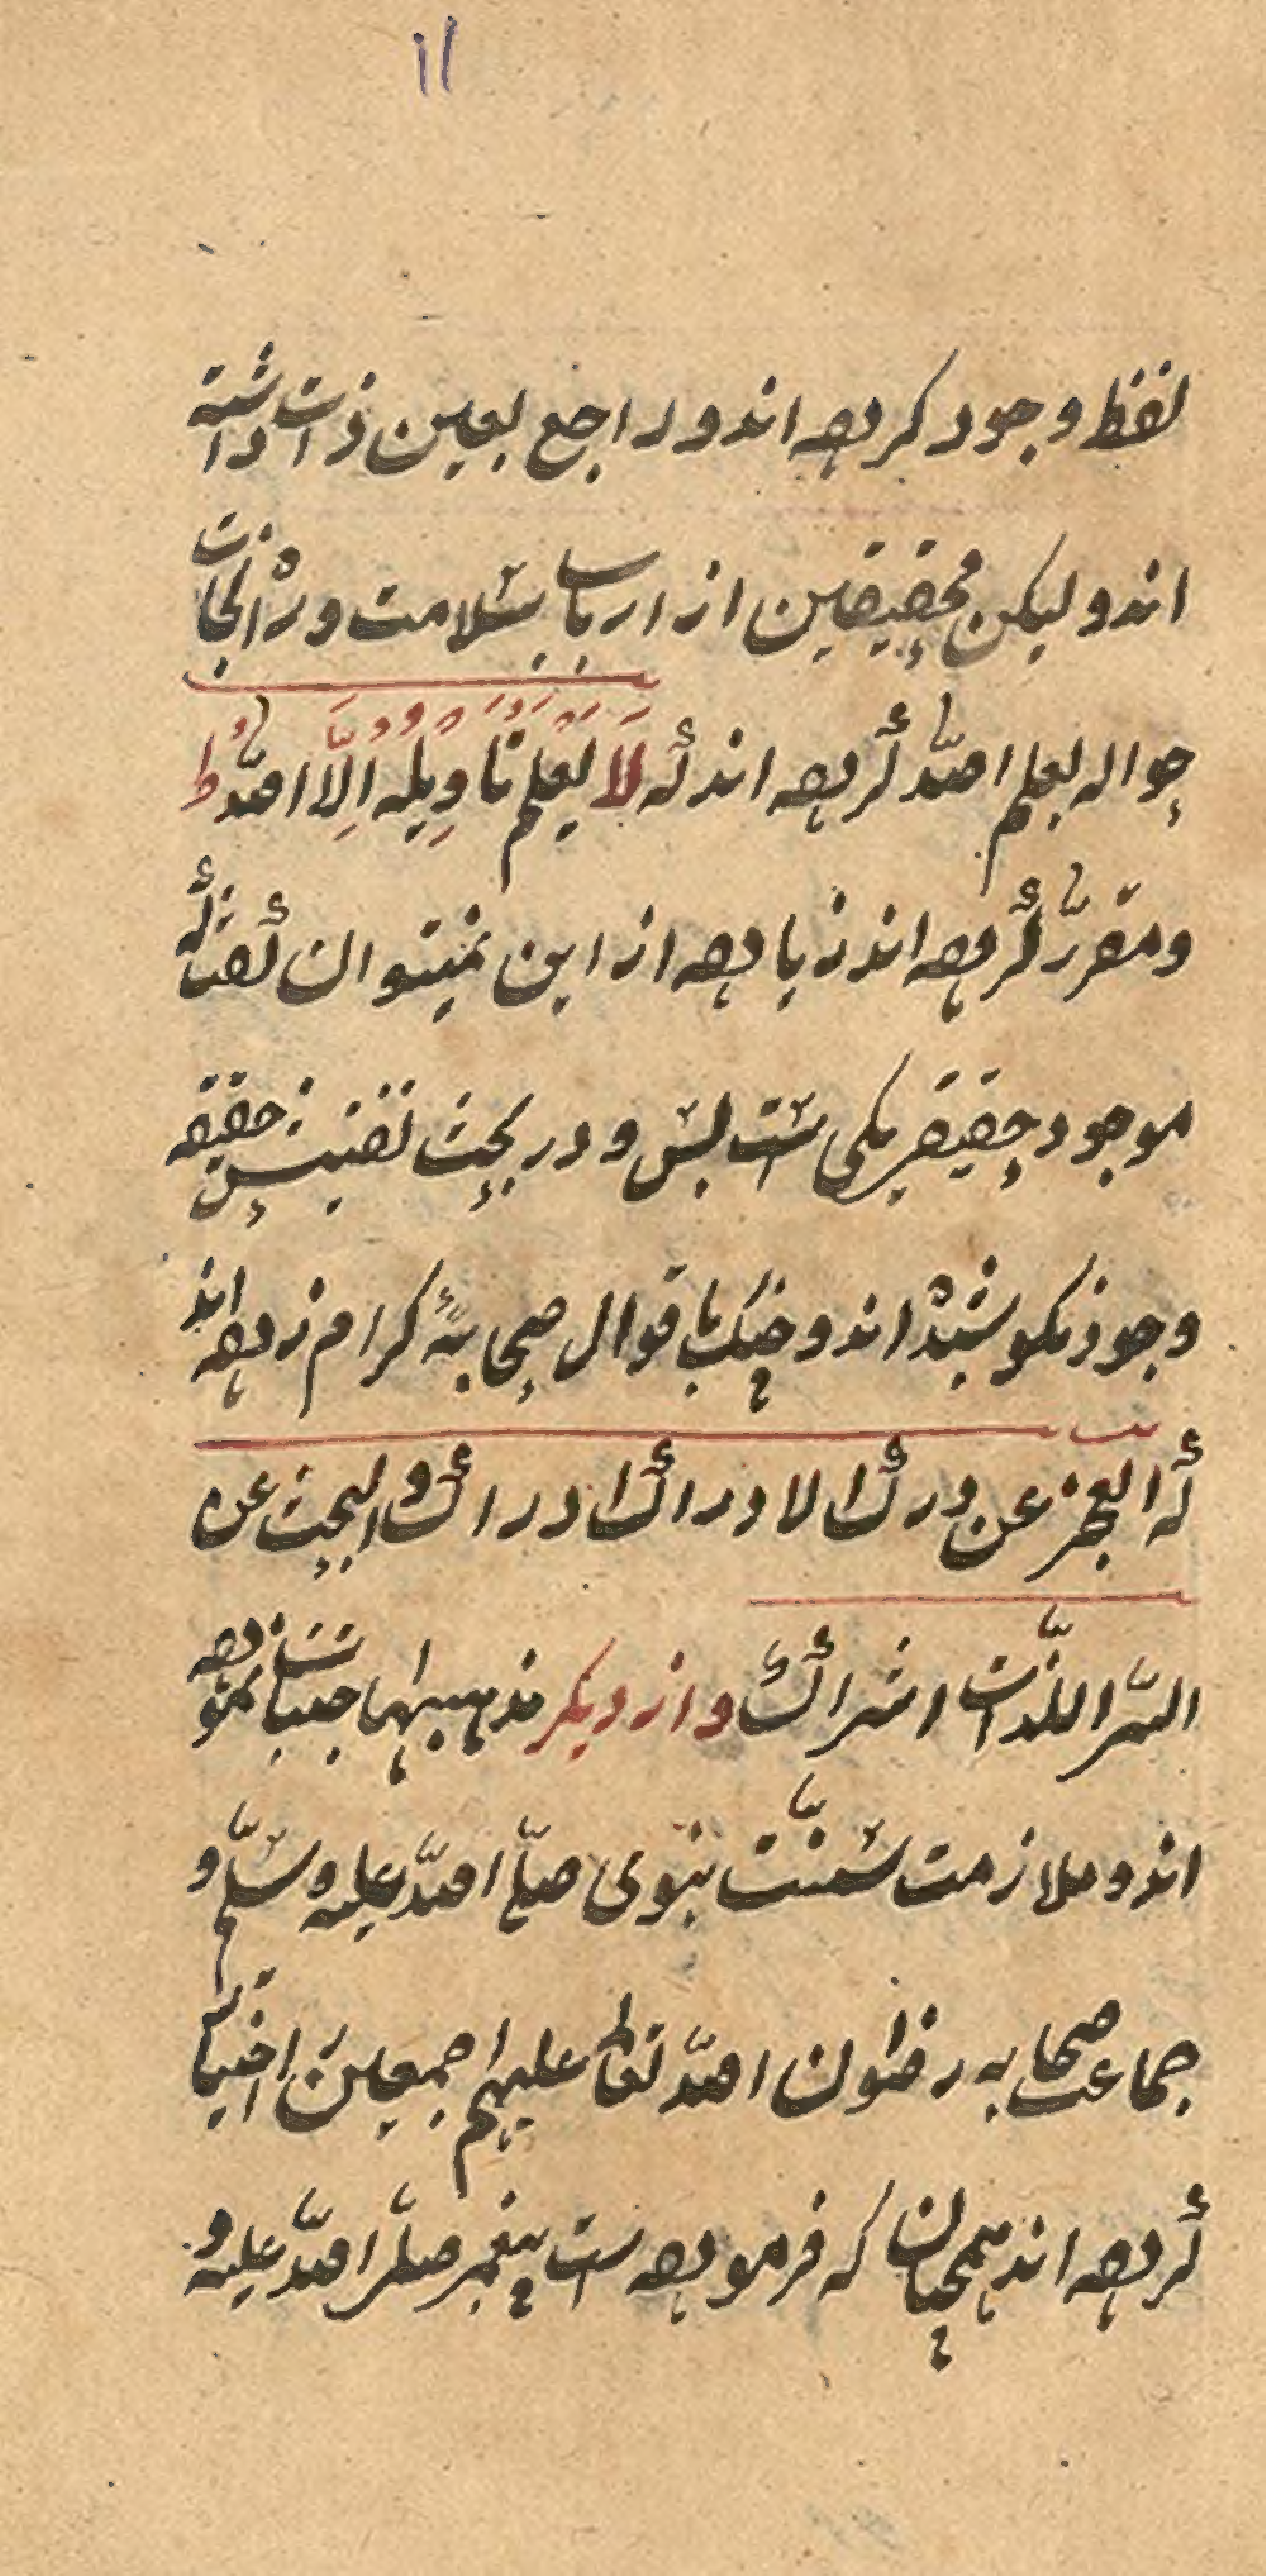 اا
لفظ وجود کرده اند و راجع بعین ذات داشته
اند و لیکن محققین از ارباب سلامت و نجات
حواله بعلم الله کرده اند که لَا یَعْلَمُ تَأوِیلَهُ اِلَّا اللهُ ط
و مقرّر کرده اند زیاده ازین نمیتوان گفت که
موجود حقیقی یکی ست بس و در بحث تفتیش حقیقة
وجود نکوشیده اند و چنگ باقوال صحابهٔ کرام زده اند
که العجز عن درك الادراك ادراك و البحث عن
السّر الذّات اشراك و از دیگر مذهبها اجتناب نموده
اند و ملازمت سنّت نبوی صلّی الله علیه و سلّم و
جماعت صحابه رضوان الله تعالی علیهم اجمعین اختیار
کرده اند همچنان که فرموده ست پیغمبر صلّی الله علیه و